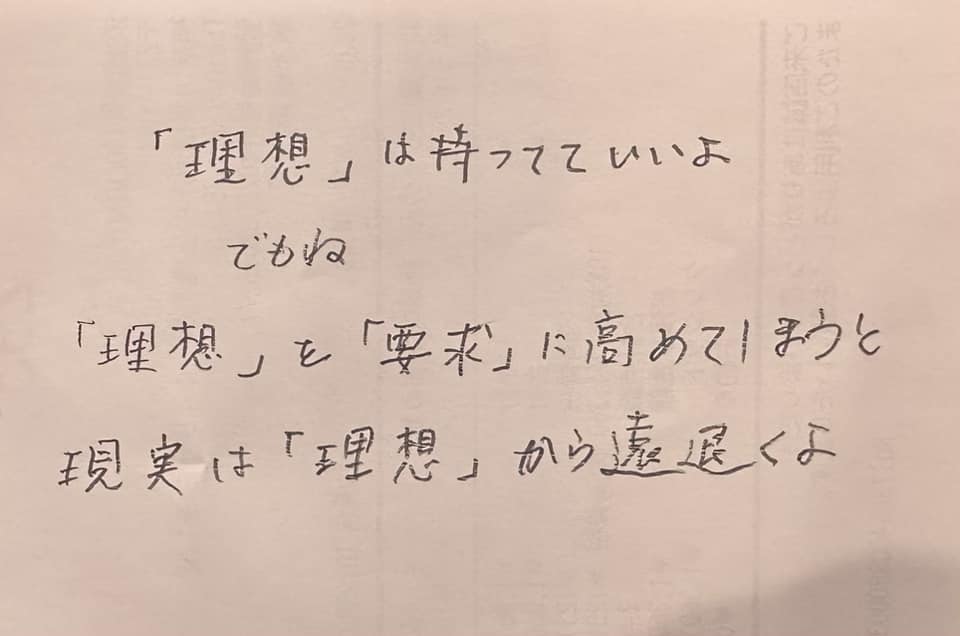 「理想」は持ってていいよ
でもね
「理想」を「要求」に高めてしまうと
現実は「理想」から遠退くよ